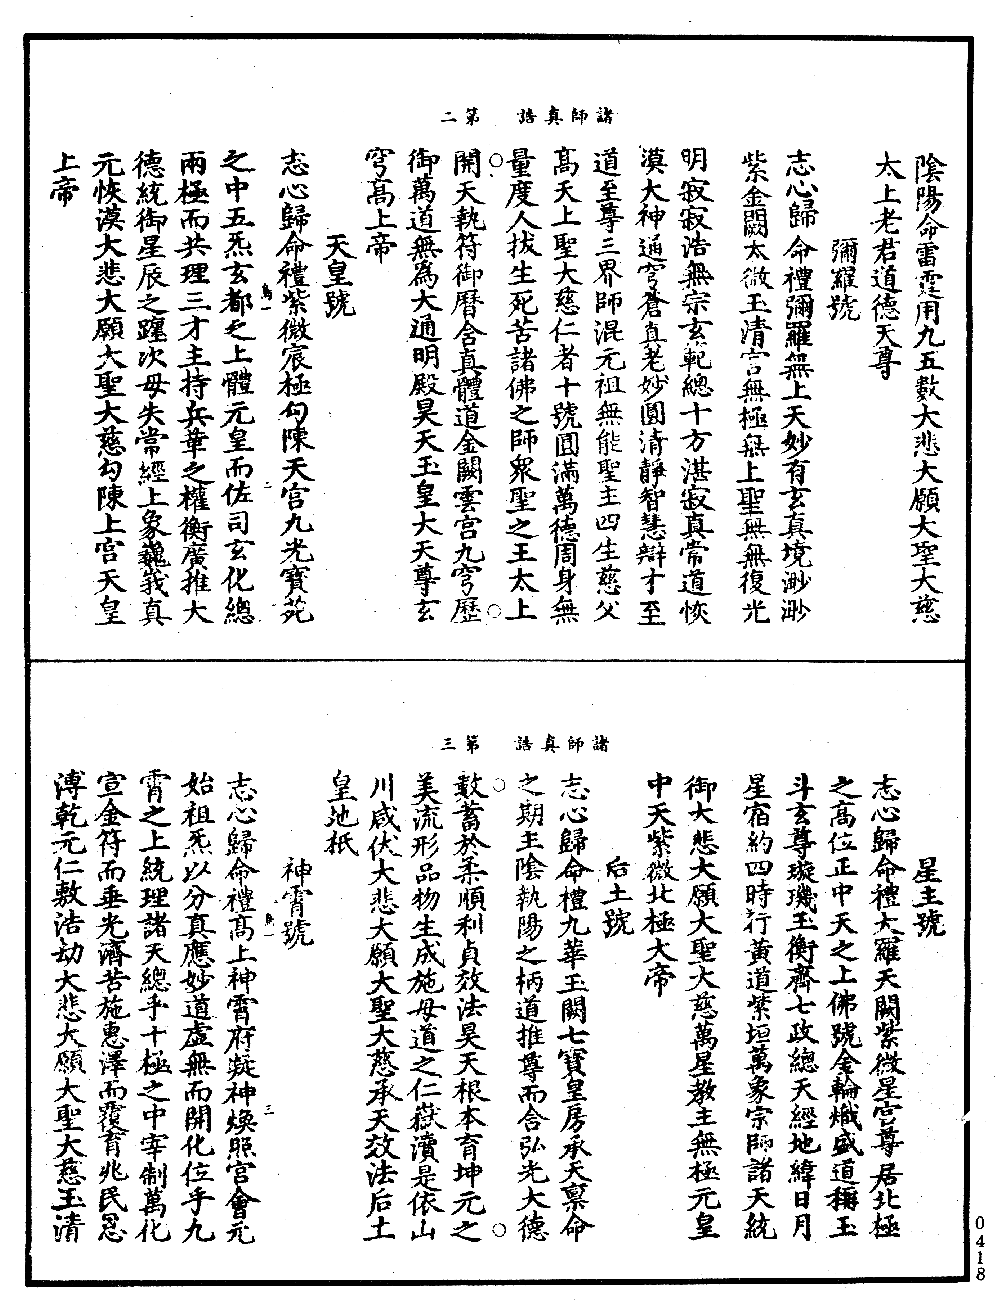 諸師真誥　第二
陰陽命雷霆用九五數大悲大願大聖大慈
太上老君道德天尊
彌羅號
志心歸命禮彌羅無上天妙有玄真境渺渺
紫金闕太微玉清宮無極無上聖無無復光
明寂寂浩無宗玄範總十方湛寂真常道恢
漠大神通穹蒼真老妙圓清靜智慧辯才至
道至尊三界師混元祖無能聖主四生慈父
高天上聖大慈仁者十號圓滿萬德周身無
量度人拔生死苦諸佛之師衆聖之王太上
開天執符御曆含真體道金闕雲宮九穹歷
御萬道無爲大通明殿昊天玉皇大天尊玄
穹高上帝
天皇號
志心歸命禮紫微宸極勾陳天宮九光寶苑
之中五炁玄都之上體元皇而佐司玄化總
兩極而共理三才主持兵革之權衡廣推大
德統御星辰之躔次毋失常經上象巍峩真
元恢漠大悲大願大聖大慈勾陳上宮天皇
上帝
諸師真誥　第三
星主號
志心歸命禮大羅天闕紫微星宮尊居北極
之高位正中天之上佛號金輪熾盛道稱玉
斗玄尊璇璣玉衡齊七政總天經地緯日月
星宿約四時行黃道紫垣萬象宗師諸天統
御大悲大願大聖大慈萬星教主無極元皇
中天紫微北極大帝
后土號
志心歸命禮九華玉闕七寶皇房承天禀命
之期主陰執陽之柄道推尊而含弘光大德
數蓄於柔順利貞效法昊天根本育坤元之
美流形品物生成施母道之仁嶽瀆是依山
川咸伏大悲大願大聖大慈承天效法后土
皇地祇
神霄號
志心歸命禮高上神霄府凝神煥照宮會元
始祖炁以分真應妙道虛無而開化位乎九
霄之上統理諸天總乎十極之中宰制萬化
宣金符而垂光濟苦施惠澤而覆育兆民恩
溥乾元仁敷浩劫大悲大願大聖大慈玉清
0418